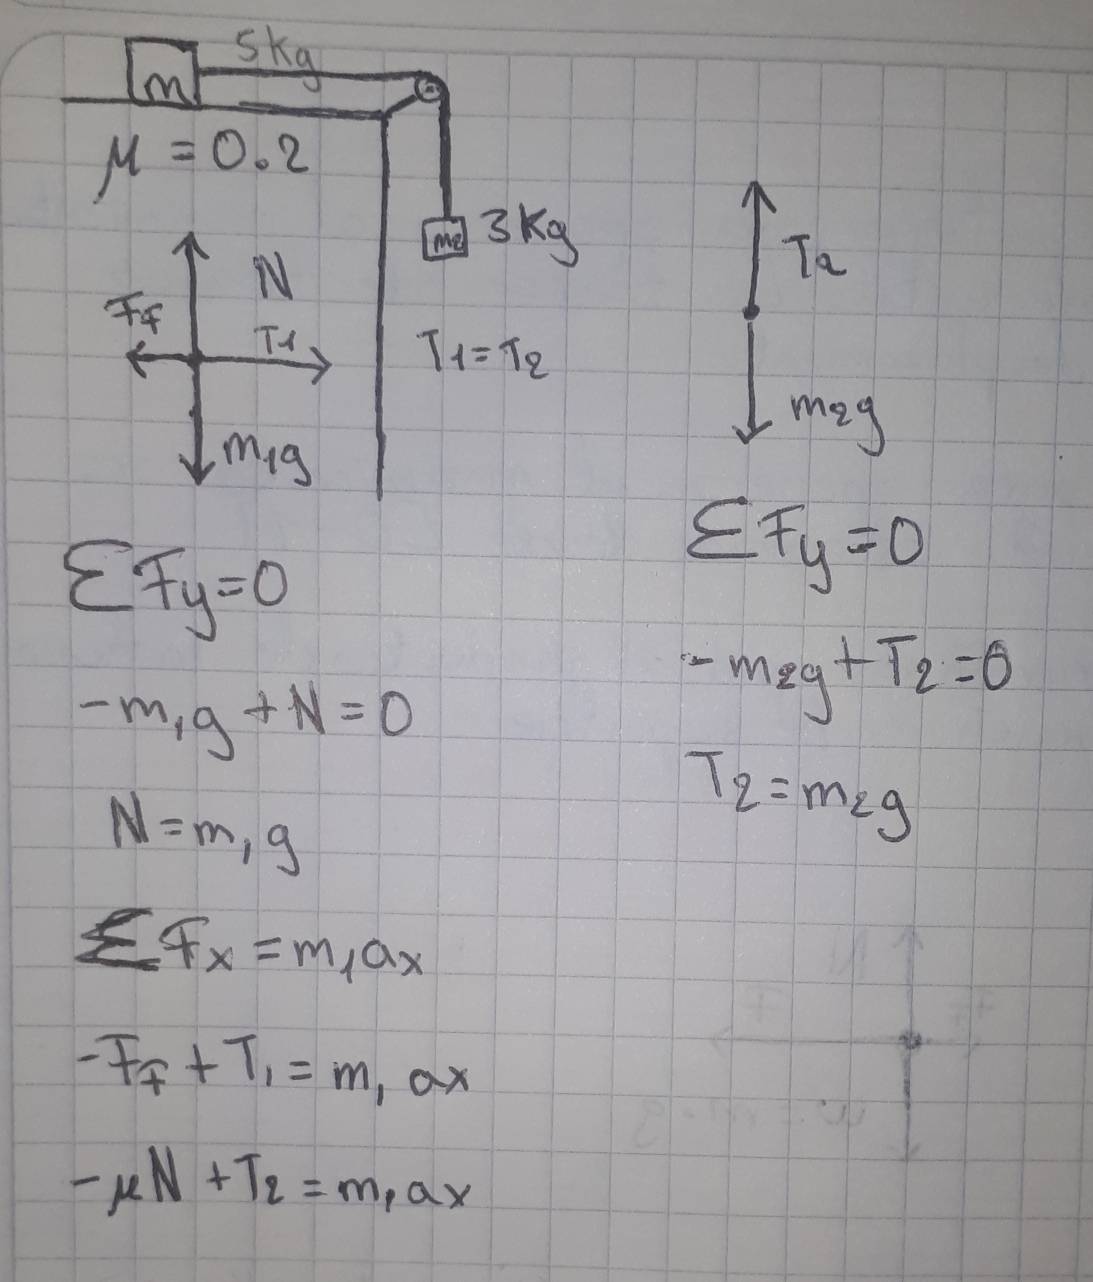 5kg
m
μ = 0.2
m2 3kg
N
Ff
T1
T1=T2
m1g
T2
m2g
ΣFy=0
-m1g+N=0
N=m1g
ΣFx=m1ax
-Ff+T1=m1ax
-μN+T2=m1ax
ΣFy=0
-m2g+T2=0
T2=m2g